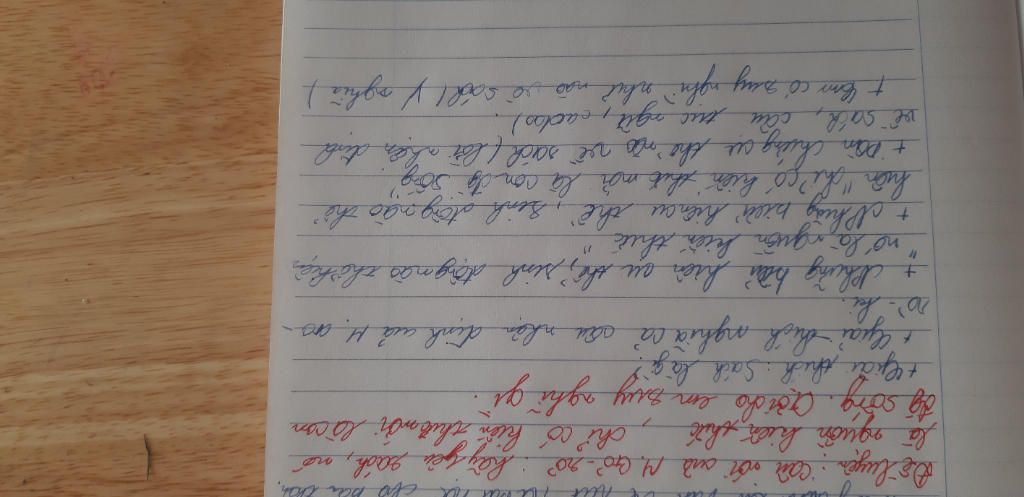 Đề luyện: Câu nói của M. Go-rơ: hãy yêu sách, nó
là nguồn kiến thức, chỉ có kiến thức mới là con
đg sống. Gợi cho em suy nghĩ gì.
+ Giải thích: Sách là gì?
+ Giải thích nghĩa cả câu nhận định của M. Gro-
rơ-ki.
+ Những biểu hiện cụ thể, sinh động nào thể hiện
"nó là nguồn kiến thức"
+ Những biểu hiện cụ thể, sinh động nào thể
hiện "chỉ có kiến thức mới là con đg sống"
+ Dẫn chứng cụ thể nào về sách (lời nhận định
về sách, câu tục ngữ, cadao)
+ Em có suy nghĩ như nào về sách (ý nghĩa)